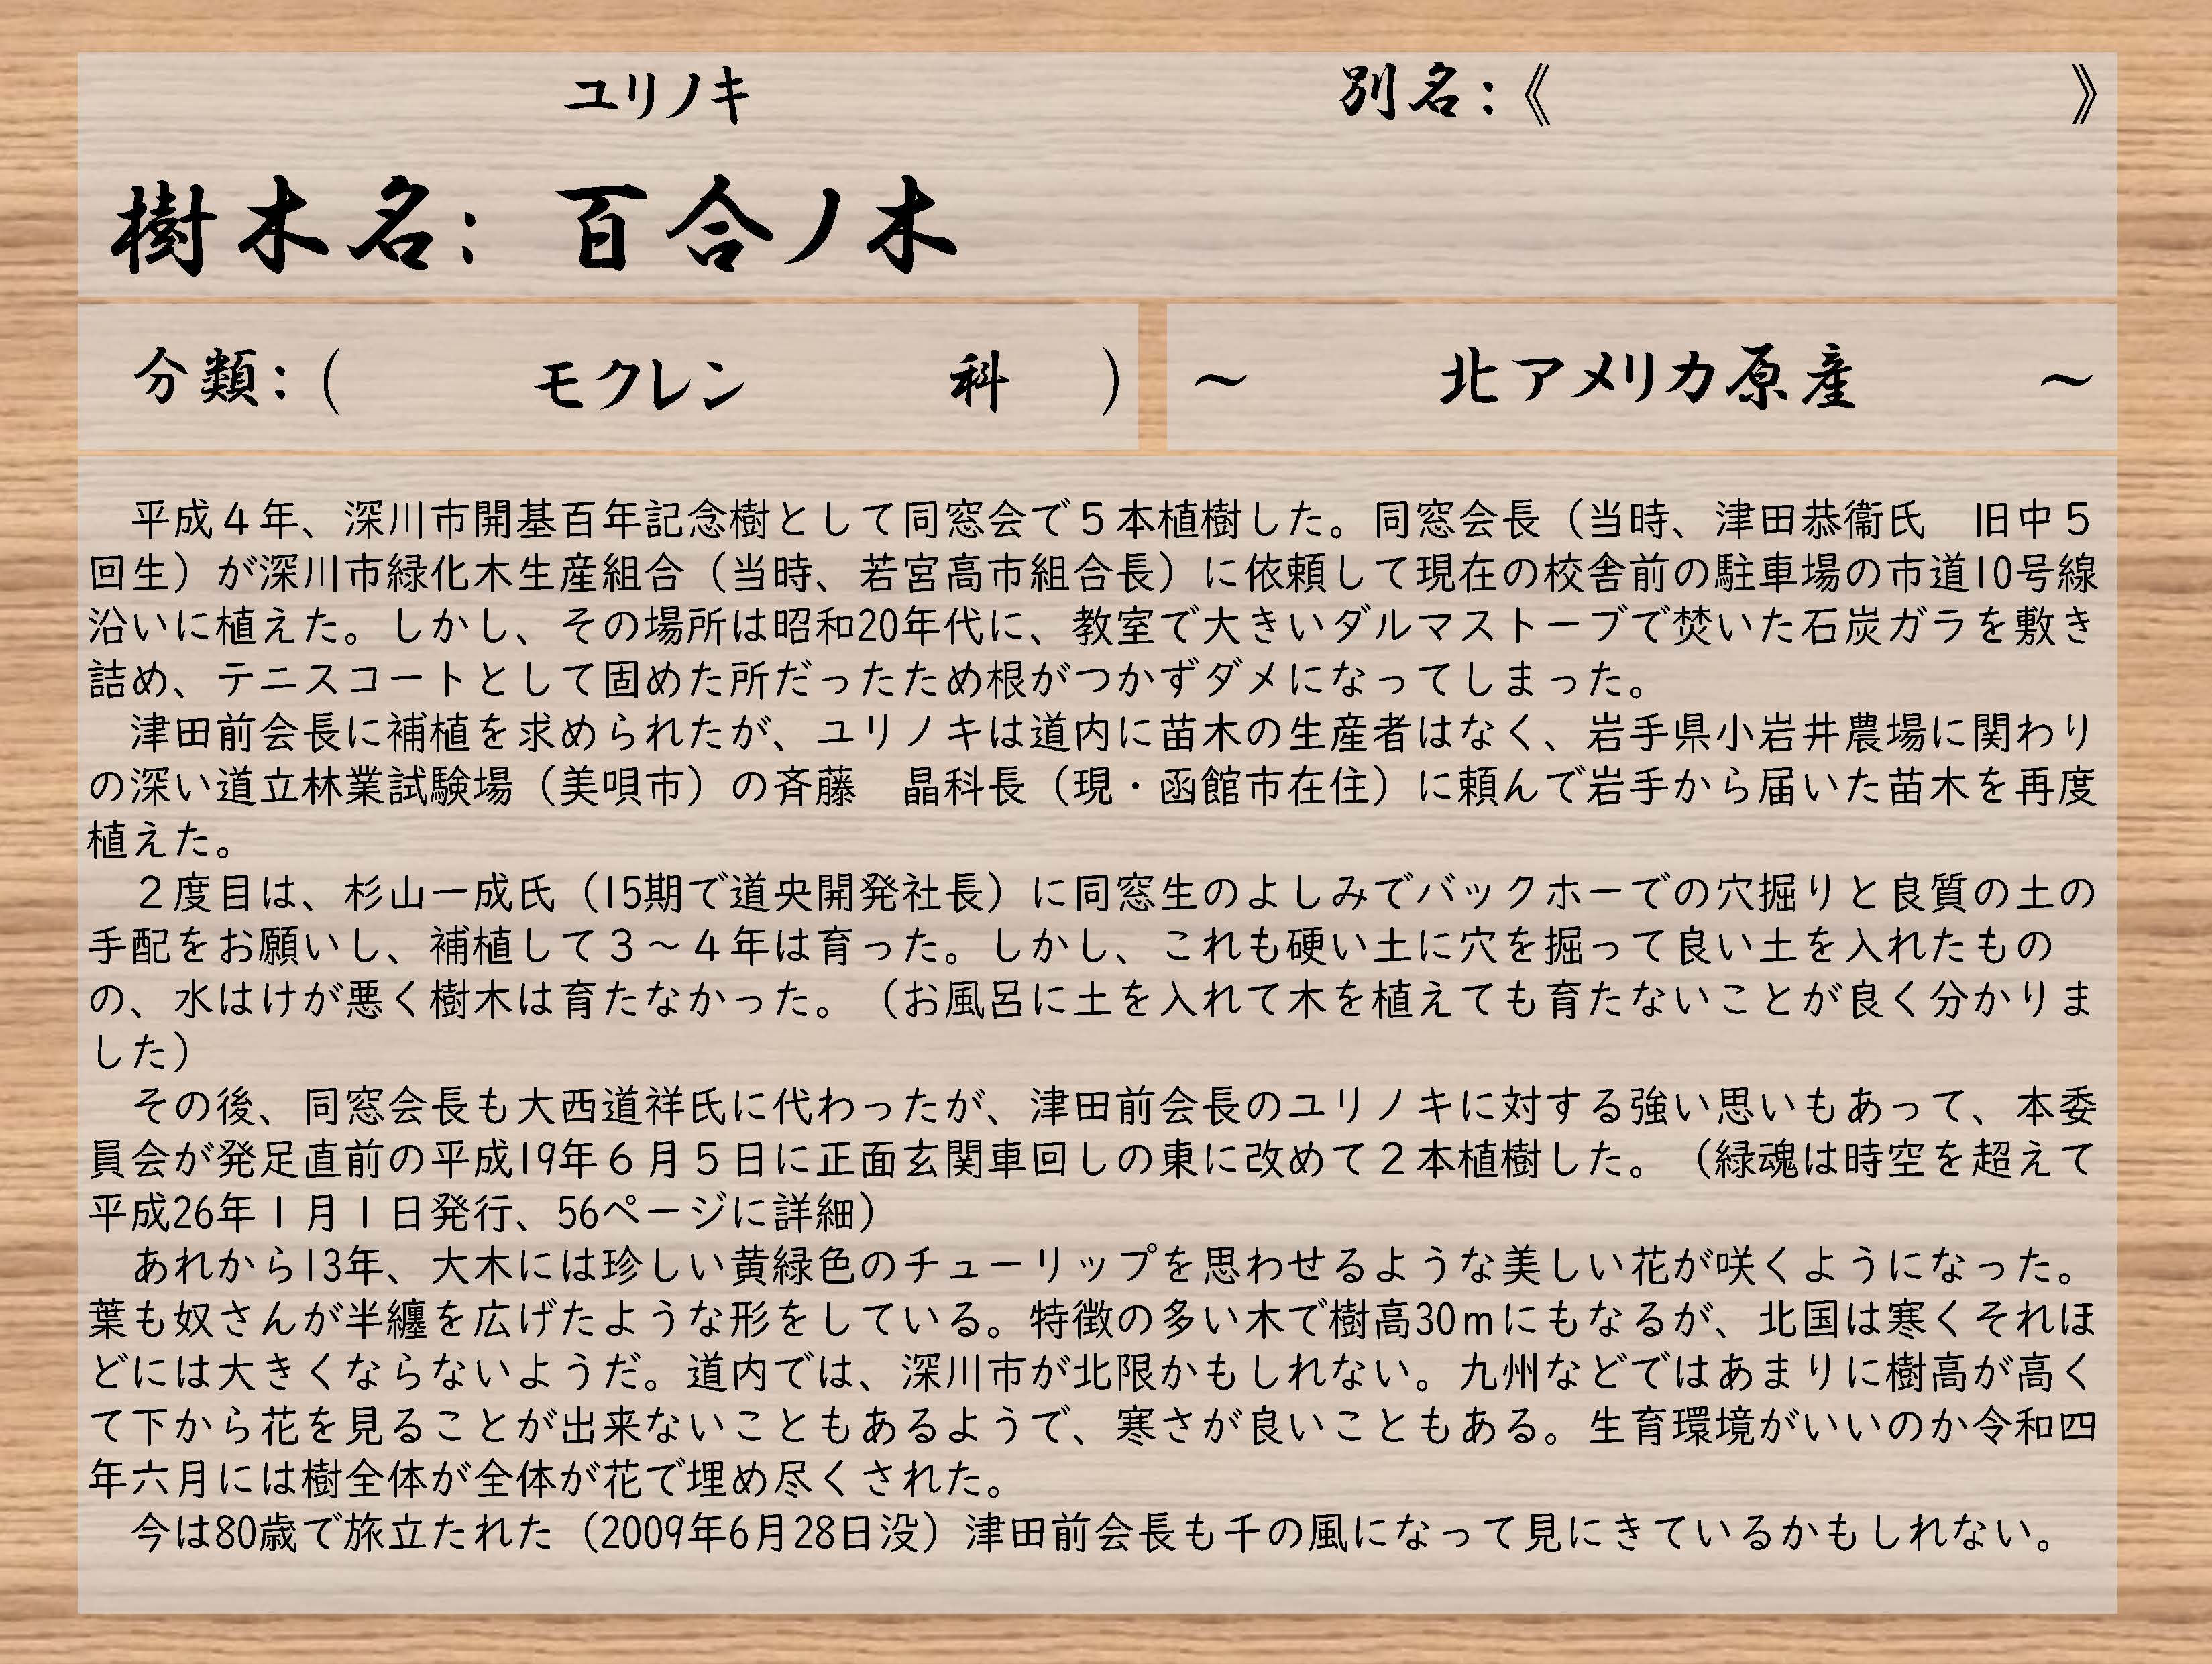 ユリノキ　別名：《　　　》
樹木名：百合ノ木
分類：（　モクレン　科　）　～　北アメリカ原産　～
　平成４年、深川市開基百年記念樹として同窓会で５本植樹した。同窓会長（当時、津田恭衞氏　旧中５
回生）が深川市緑化木生産組合（当時、若宮高市組合長）に依頼して現在の校舎前の駐車場の市道10号線
沿いに植えた。しかし、その場所は昭和20年代に、教室で大きいダルマストーブで焚いた石炭ガラを敷き
詰め、テニスコートとして固めた所だったため根がつかずダメになってしまった。
　津田前会長に補植を求められたが、ユリノキは道内に苗木の生産者はなく、岩手県小岩井農場に関わり
の深い道立林業試験場（美唄市）の斉藤　晶科長（現・函館市在住）に頼んで岩手から届いた苗木を再度
植えた。
　２度目は、杉山一成氏（15期で道央開発社長）に同窓生のよしみでバックホーでの穴掘りと良質の土の
手配をお願いし、補植して３～４年は育った。しかし、これも硬い土に穴を掘って良い土を入れたもの
の、水はけが悪く樹木は育たなかった。（お風呂に土を入れて木を植えても育たないことが良く分かりま
した）
　その後、同窓会長も大西道祥氏に代わったが、津田前会長のユリノキに対する強い思いもあって、本委
員会が発足直前の平成19年６月５日に正面玄関車回しの東に改めて２本植樹した。（緑魂は時空を超えて
平成26年１月１日発行、56ページに詳細）
　あれから13年、大木には珍しい黄緑色のチューリップを思わせるような美しい花が咲くようになった。
葉も奴さんが半纏を広げたような形をしている。特徴の多い木で樹高30ｍにもなるが、北国は寒くそれほ
どには大きくならないようだ。道内では、深川市が北限かもしれない。九州などではあまりに樹高が高く
て下から花を見ることが出来ないこともあるようで、寒さが良いこともある。生育環境がいいのか令和四
年六月には樹全体が全体が花で埋め尽くされた。
　今は80歳で旅立たれた（2009年6月28日没）津田前会長も千の風になって見にきているかもしれない。